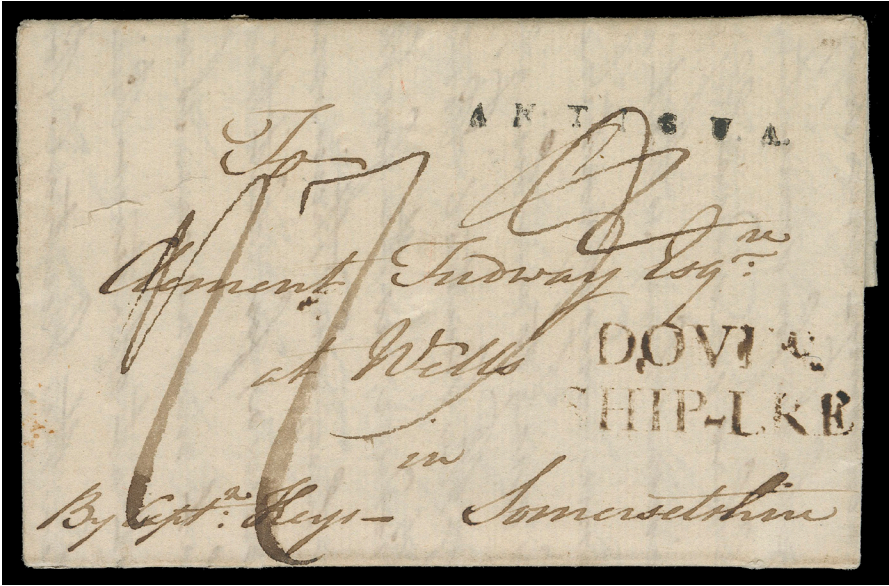 ANTIGUA.
To
Clement Tudway Esqre.
at Wells
DOVER
SHIP-LRE
in
By Captn. Keys— Somersetshire